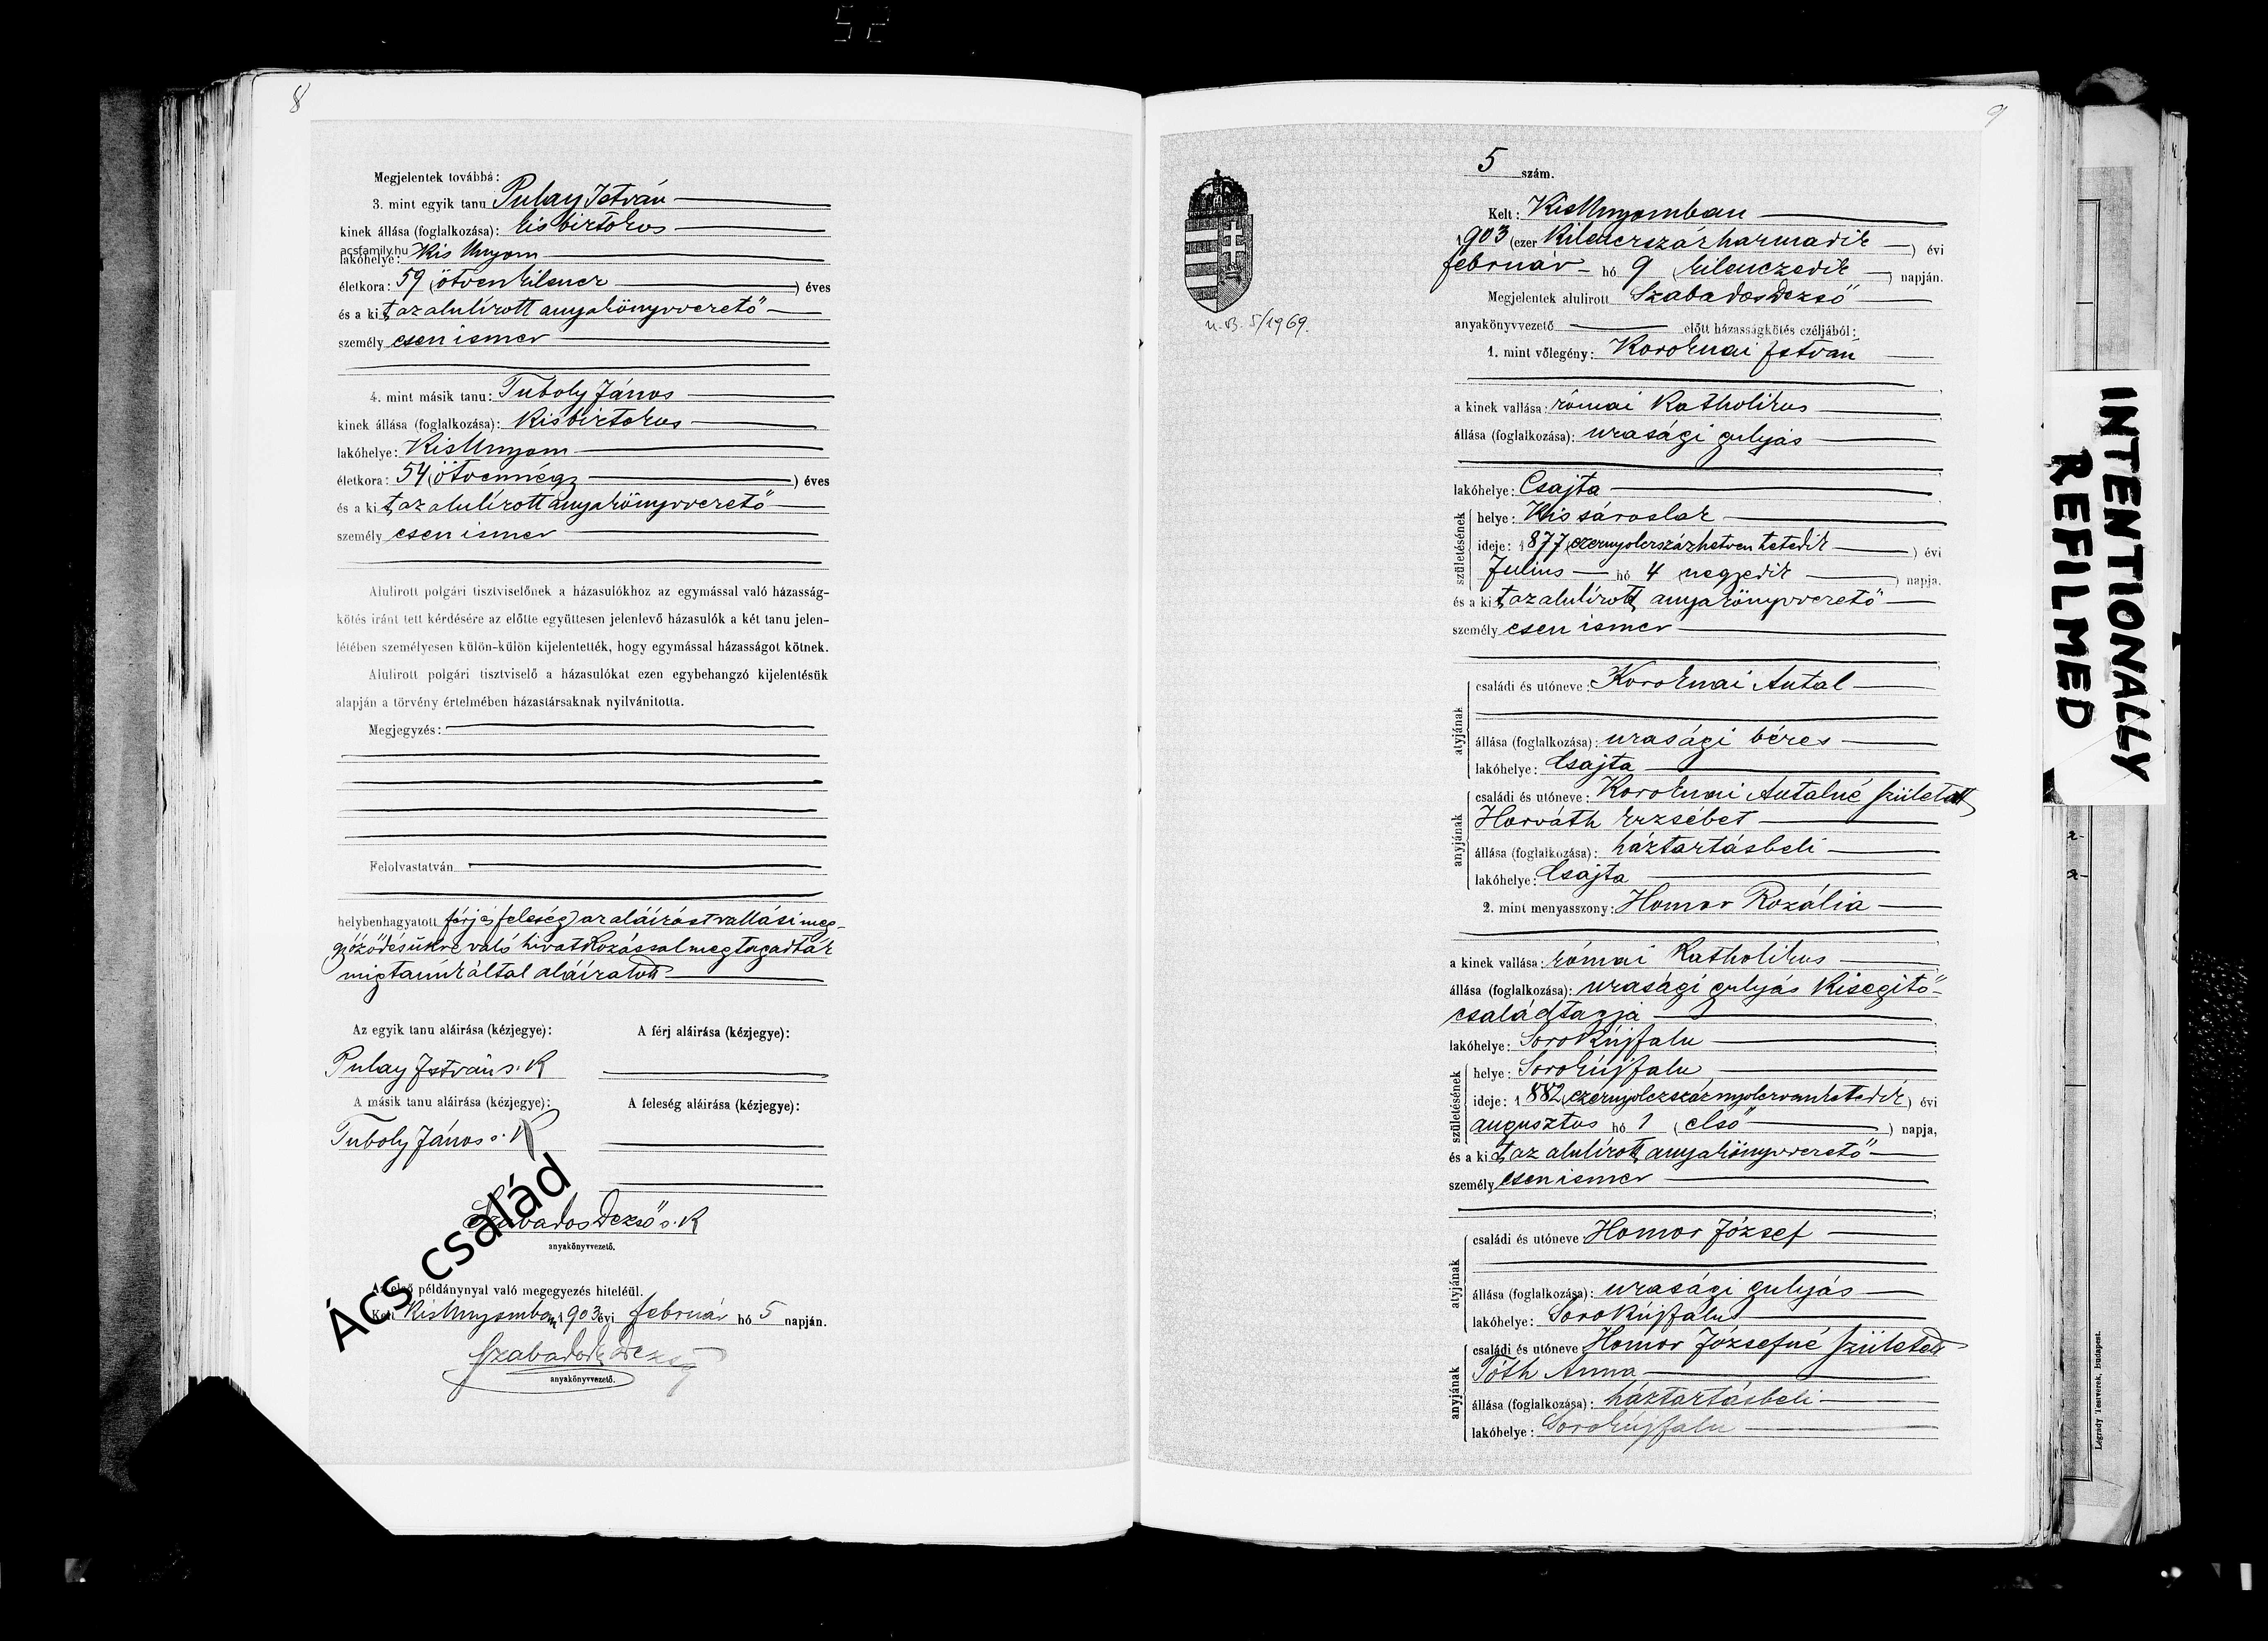 8
Megjelentek továbbá:
3. mint egyik tanu Pulay István
kinek állása (foglalkozása): kisbirtokos
acsfamily.hu
lakóhelye: Kis Unyom
életkora: 59 (ötvenkilencz ) éves
és a kit az alulírott anyakönyvvezető
személyesen ismer
4. mint másik tanu: Tuboly János
kinek állása (foglalkozása): Kisbirtokos
lakóhelye: KisUnyom
életkora: 54 (ötvennégy ) éves
és a kit az alulírott anyakönyvvezető
személyesen ismer
Alulirott polgári tisztviselőnek a házasulókhoz az egymással való házasság-
kötés iránt tett kérdésére az előtte együttesen jelenlevő házasulók a két tanu jelen-
létében személyesen külön-külön kijelentették, hogy egymással házasságot kötnek.
Alulirott polgári tisztviselő a házasulókat ezen egybehangzó kijelentésük
alapján a törvény értelmében házastársaknak nyilvánitotta.
Megjegyzés:
Felolvastatván
helybenhagyatott férj és feleség az aláírást vallási meg-
győződésükre való hivatkozással megtagadták
mig tanúk által aláíratott
Az egyik tanu aláirása (kézjegye): A férj aláirása (kézjegye):
Pulay István s. k
A másik tanu aláirása (kézjegye): A feleség aláirása (kézjegye):
Tuboly János s. k
Szabados Dezső s. k
anyakönyvvezető.
Ács család
Az első példánynyal való megegyezés hiteléül.
Kelt KisUnyomban 1903 évi február hó 5 napján.
Szabados Dezső
anyakönyvvezető.
9
5 szám.
Kelt: KisUnyomban
1903 (ezer kilenczszázharmadik ) évi
február hó 9 (kilenczedik ) napján.
Megjelentek alulirott Szabados Dezső
anyakönyvvezető előtt házasságkötés czéljából:
u. B. 5/1969.
1. mint vőlegény: Koroknai István
a kinek vallása: római Katholikus
állása (foglalkozása): urasági gulyás
lakóhelye: Csajta
születésének
helye: Kis sároslak
ideje: 1877 (ezernyolczszázhetvenhetedik ) évi
Julius hó 4 negyedik ) napja,
és a kit az alulírott anyakönyvvezető
személyesen ismer
atyjának
családi és utóneve: Koroknai Antal
állása (foglalkozása): urasági béres
lakóhelye: Csajta
anyjának
családi és utóneve: Koroknai Antalné született
Horváth Erzsébet
állása (foglalkozása): háztartásbeli
lakóhelye: Csajta
2. mint menyasszony: Homor Rozália
a kinek vallása: római Katholikus
állása (foglalkozása): urasági gulyás kisegitő
családtagja
lakóhelye: Sorokújfalu
születésének
helye: Sorokújfalu
ideje: 1882 (ezernyolczszáznyolczvankettedik ) évi
augusztus hó 1 (első ) napja,
és a kit az alulírott anyakönyvvezető
személyesen ismer
atyjának
családi és utóneve Homor József
állása (foglalkozása): urasági gulyás
lakóhelye: Sorokújfalu
anyjának
családi és utóneve Homor Józsefné született
Tóth Anna
állása (foglalkozása): háztartásbeli
lakóhelye: Sorokújfalu
INTENTIONALLY
REFILMED
Légrády Testvérek, Budapest.
52